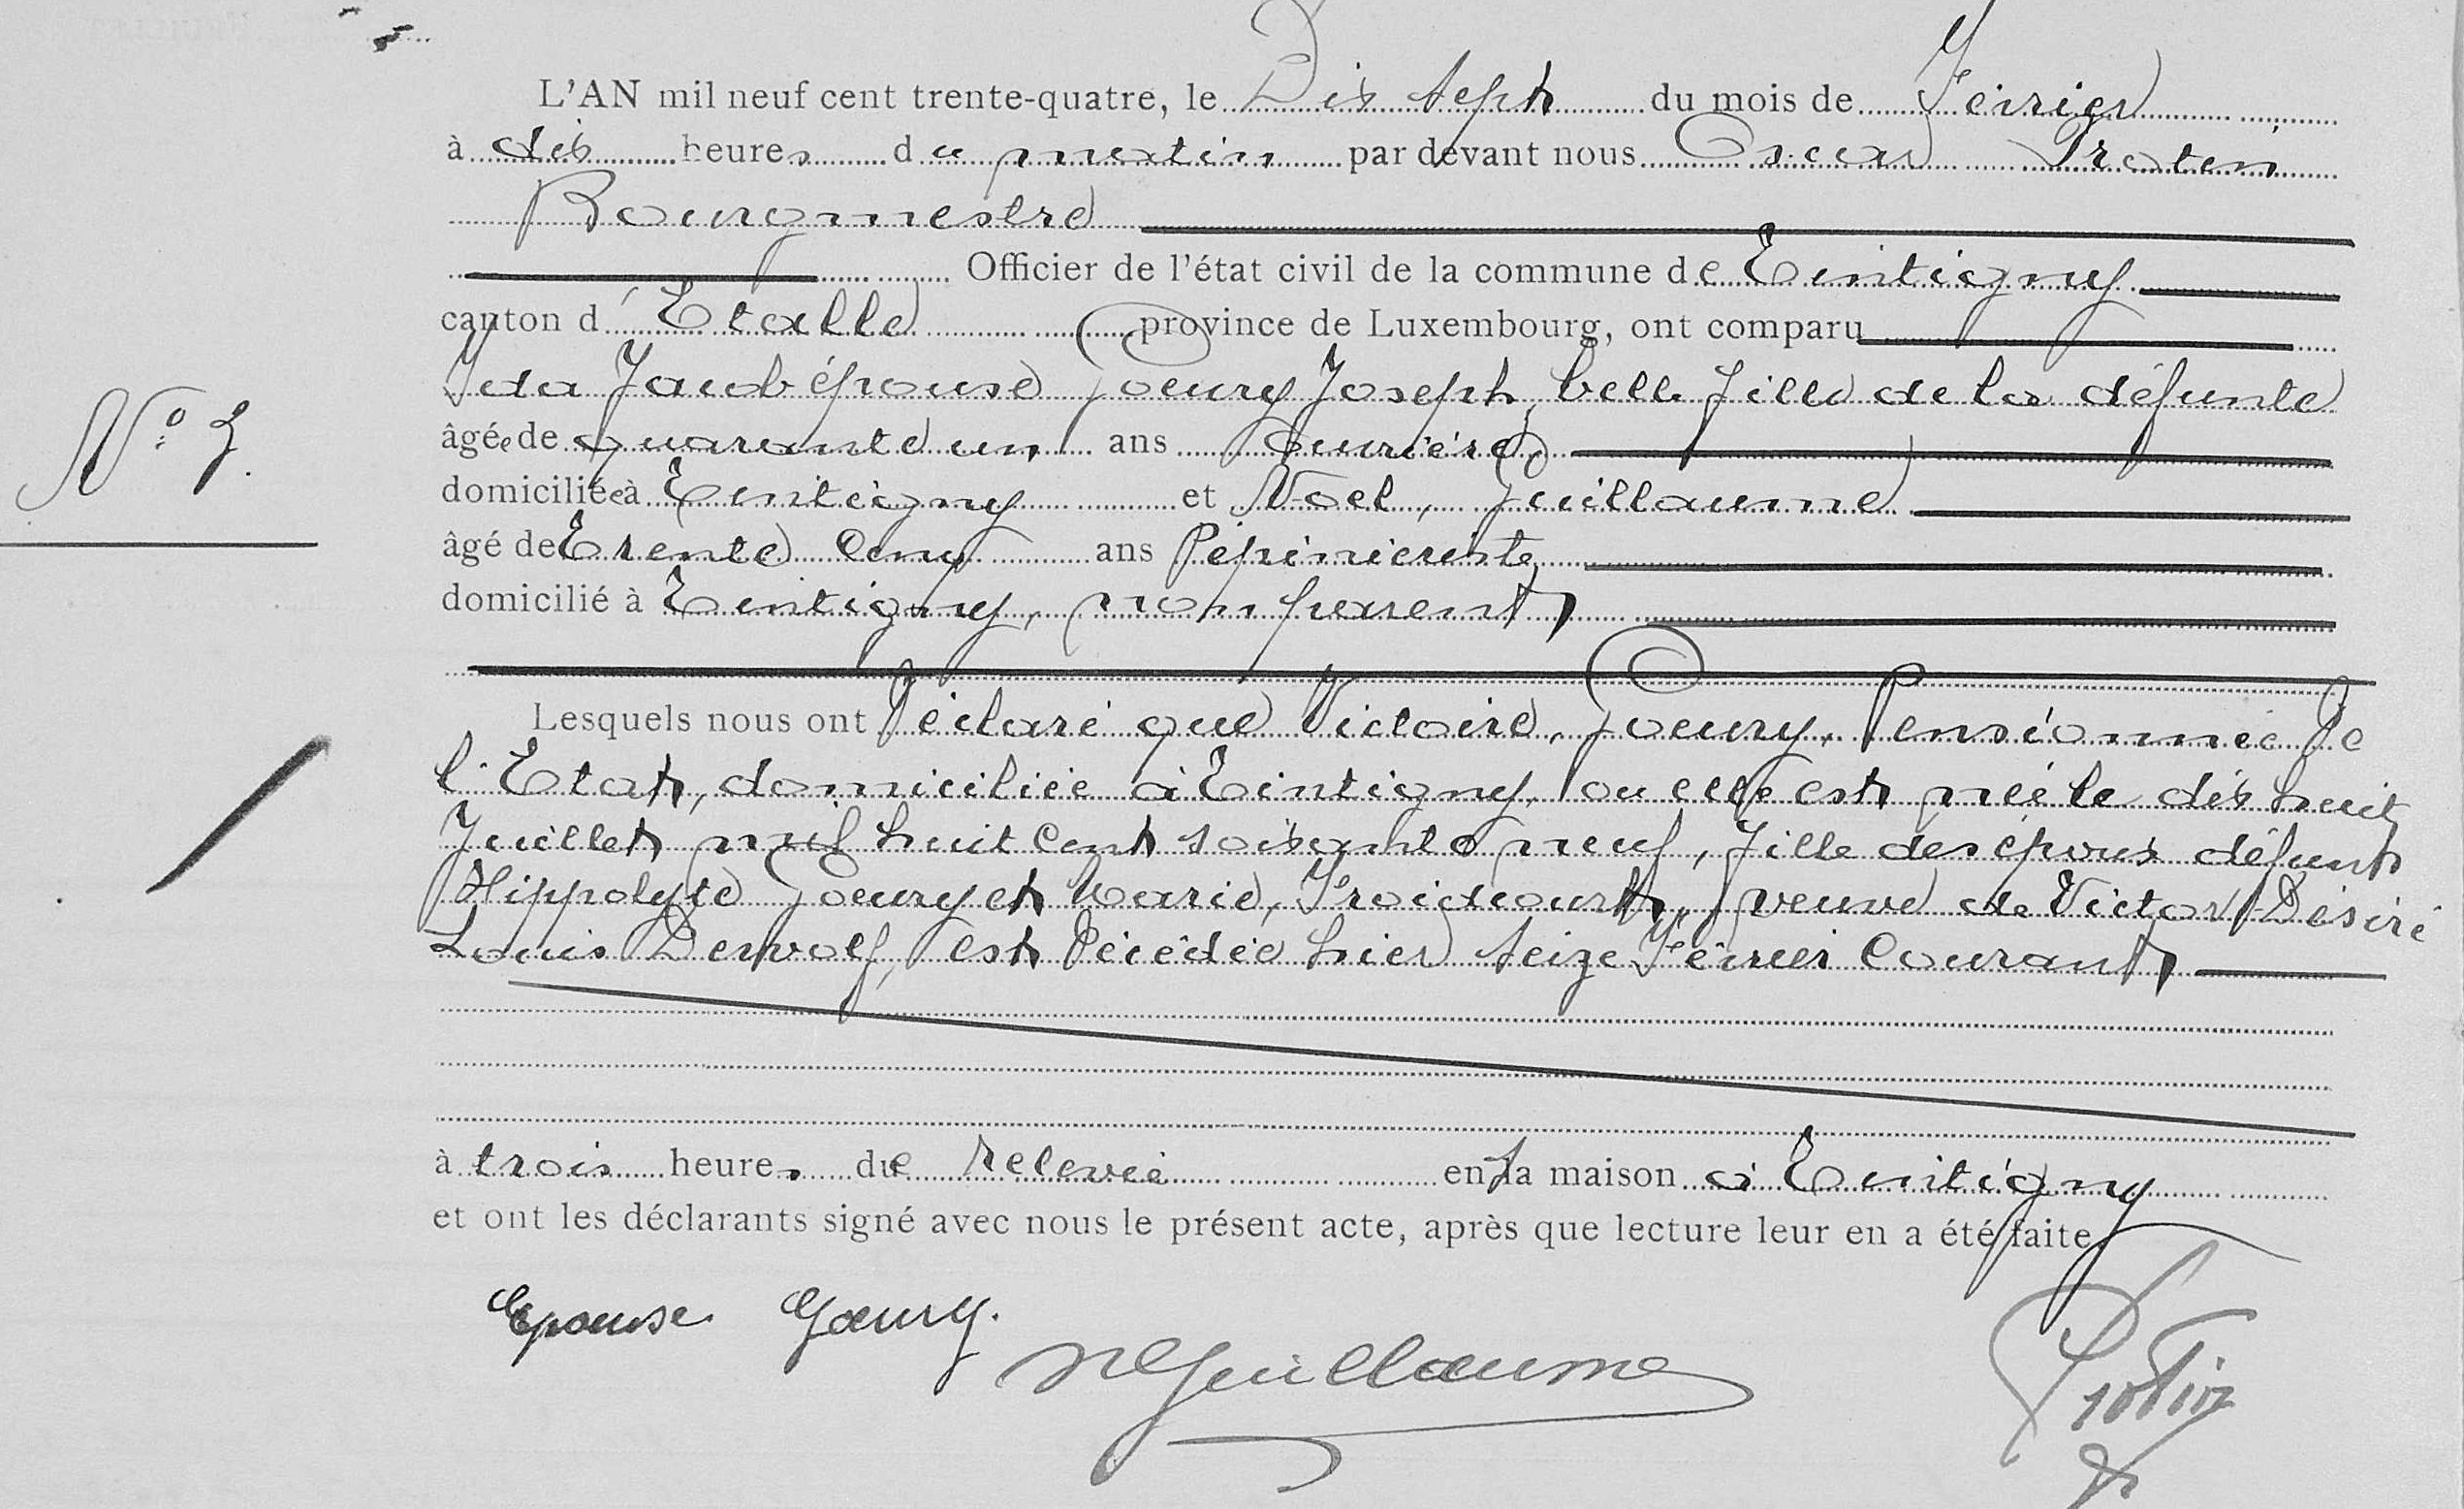 L'AN mil neuf cent trente-quatre, le Dix sept du mois de Février
à dix heures du matin par devant nous Oscar Protin
Bourgmestre
Officier de l'état civil de la commune de Tintigny
canton d'Etalle province de Luxembourg, ont comparu
Ida Jacob épouse Goeury Joseph, belle fille de la défunte
âgée de quarante un ans Ouvrière
N° 3.
domiciliée à Tintigny et Noel, Guillaume
âgé de Trente cinq ans Pépinieriste
domicilié à Tintigny, non parent
Lesquels nous ont Déclaré que Victoire, Goeury, Pensionnée De
l'Etat, domiciliée à Tintigny, ou elle est née le dix huit
Juillet mil huit cent soixante neuf, fille des époux défunts
Hippolyte Goeury et Marie, Froidcourt, veuve de Victor Désiré
Louis Dewolf, est Décédée hier seize Février courant
à trois heures de relevée en sa maison à Tintigny
et ont les déclarants signé avec nous le présent acte, après que lecture leur en a été faite
Epouse Goeury.
N Guillaume
Protin